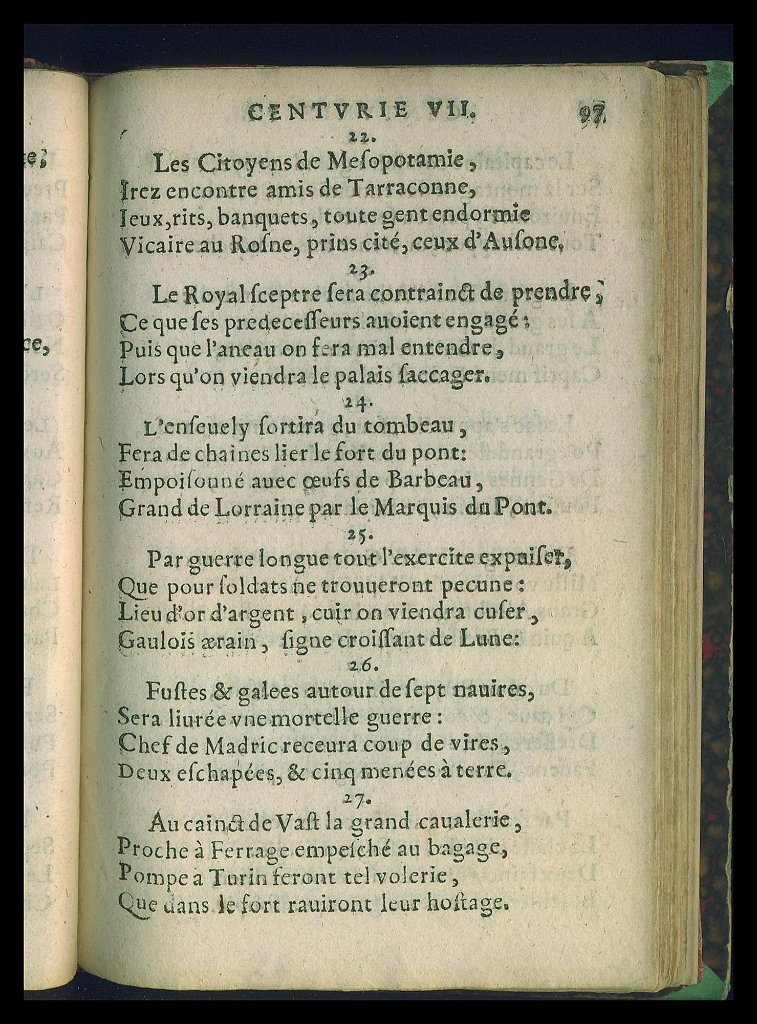 ce;
ce,
CENTVRIE VII. 97.
22.
Les Citoyens de Meſopotamie,
Irez encontre amis de Tarraconne,
Ieux, rits, banquets, toute gent endormie
Vicaire au Roſne, prins cité, ceux d'Auſone.
23.
Le Royal ſceptre ſera contrainct de prendre,
Ce que ſes predeceſſeurs auoient engagé:
Puis que l'aneau on fera mal entendre,
Lors qu'on viendra le palais ſaccager.
24.
L'enſeuely ſortira du tombeau,
Fera de chaines lier le fort du pont:
Empoiſonné auec œufs de Barbeau,
Grand de Lorraine par le Marquis du Pont.
25.
Par guerre longue tout l'exercite expuiſer,
Que pour ſoldats ne trouueront pecune:
Lieu d'or d'argent, cuir on viendra cuſer,
Gaulois ærain, ſigne croiſſant de Lune:
26.
Fuſtes & galees autour de ſept nauires,
Sera liurée vne mortelle guerre:
Chef de Madric receura coup de vires,
Deux eſchapées, & cinq menées à terre.
27.
Au cainct de Vaſt la grand caualerie,
Proche à Ferrage empeſché au bagage,
Pompe a Turin feront tel volerie,
Que dans le fort rauiront leur hoſtage.